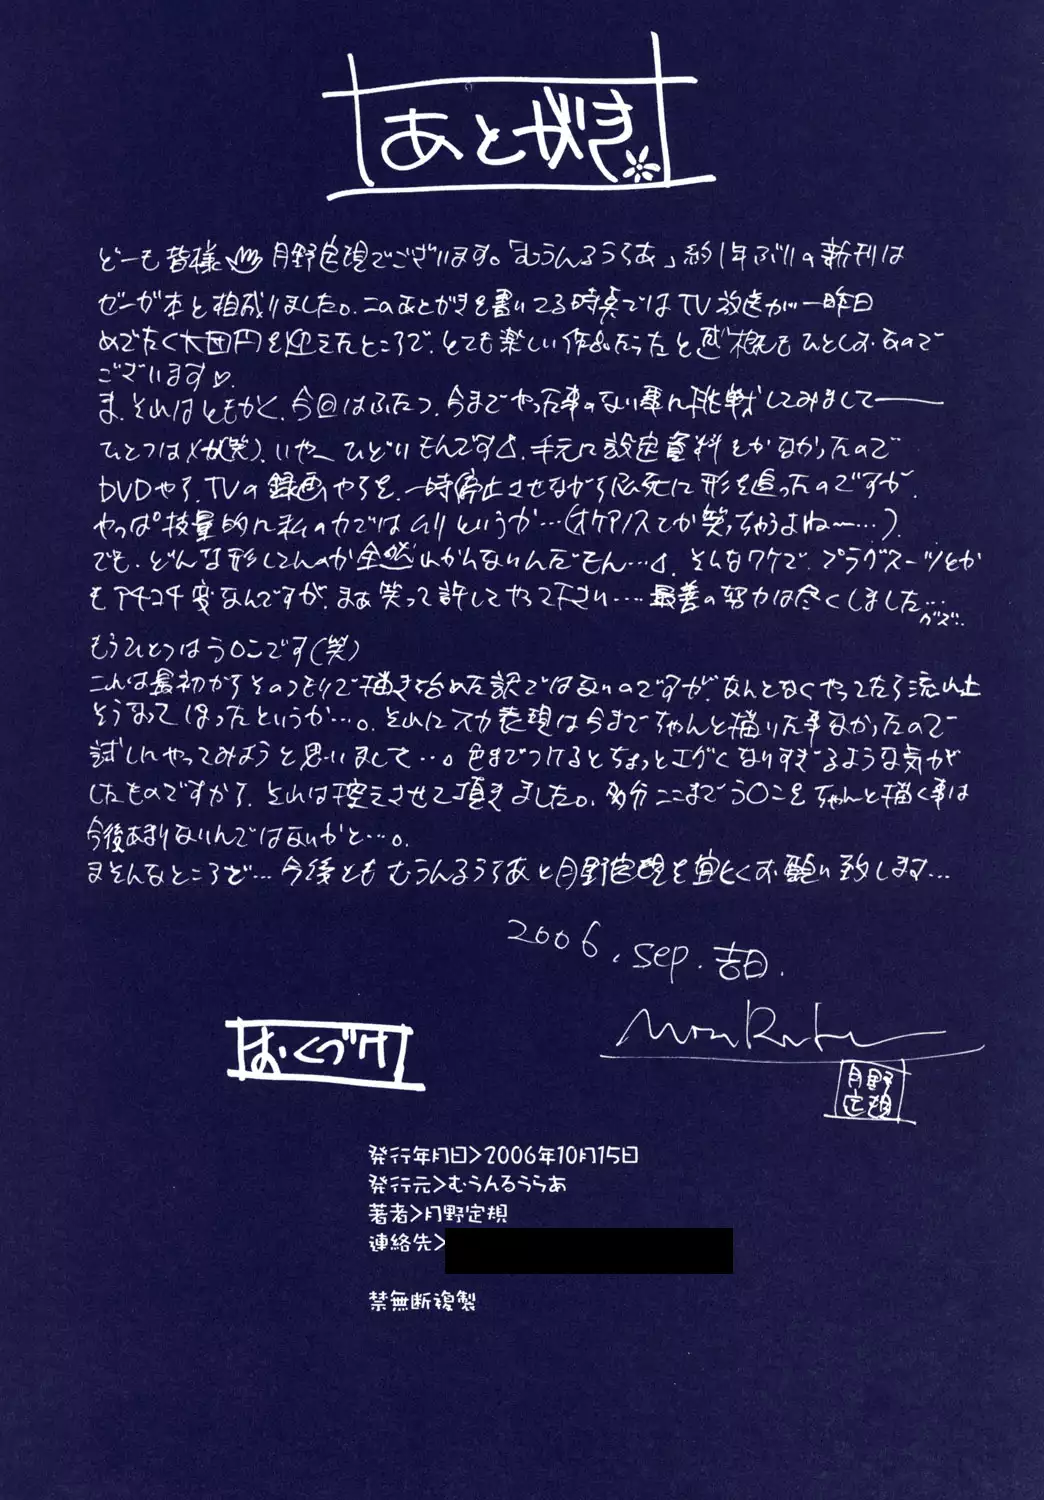 あとがき
どーも皆様 月野定規でございます。「むうんるうらあ」約1年ぶりの新刊は
ゼーガ本と相成りました。このあとがきを書いてる時点ではTV放送が一昨日
めでたく大団円を迎えたところで、とても楽しい作品だったと感慨もひとしおなので
ございます♡.
ま、それはともかく、今回はふたつ、今までやった事のない事に挑戦してみまして――
ひとつはメカ(笑)、いやーひどいもんです、手元に設定資料とかなかったので
DVDやら、TVの録画やらを、一時停止させながら必死に形を追ったのですが、
やっぱ技量的に私の力ではムリというか…(オケアノスとか笑っちゃうよね〜…)
でも、どんな形してんのか全然わかんないんだもん…、そんなワケで、プラグスーツとか
もアチコチ変なんですが、まぁ笑って許してやって下さい…最善の努力は尽くしました…
グズ..
もうひとつはう○こです(笑)
これは最初からそのつもりで描き始めた訳ではないのですが、なんとなくやってたら流れ上
そうなってしまったというか…。それにスカ表現は今までちゃんと描いた事なかったので
試しにやってみようと思いまして…。色までつけるとちょっとエグくなりすぎるような気が
したものですから、それは控えさせて頂きました。多分ここまでう○こをちゃんと描く事は
今後あまりないんではないかと…。
まそんなところで…今後ともむうんるうらあと月野定規を宜しくお願い致します…
2006.sep.吉日.
月野
定規
おくづけ
発行年月日>2006年10月15日
発行元>むうんるうらあ
著者>月野定規
連絡先>
禁無断複製